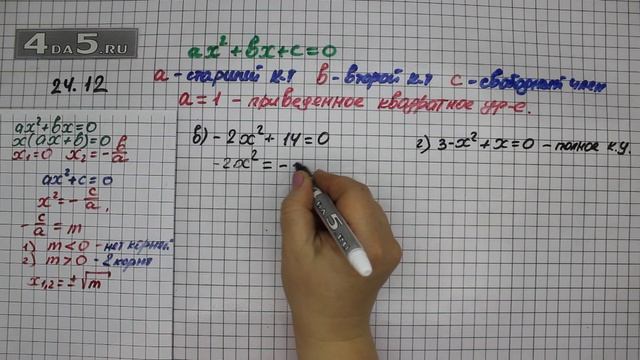 4DA5.RU
24.12
ax²+bx+c=0
a - старший к.т b - второй к.т c - свободный член
a=1 - приведенное квадратное ур-е.
ax²+bx=0
x(ax+b)=0
x₁=0 x₂=-b/a
ax²+c=0
x²=-c/a
-c/a=m
1) m<0 - нет корней
2) m>0 - 2 корня
x₁,₂=±√m
в) -2x²+14=0
-2x²=-
г) 3-x²+x=0 - полное к.у.
4 DA 5 .RU